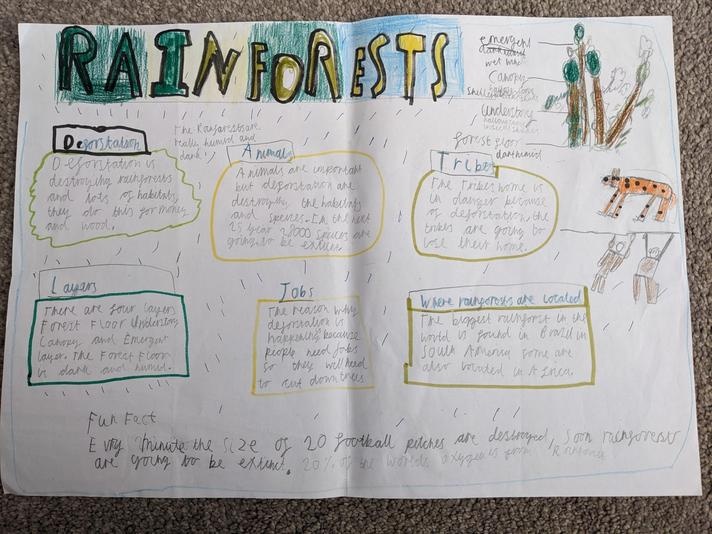 RAINFORESTS
emergent
dark humid
wet
Canopy
Understory
forest floor
dark humid
The Rainforests are
really humid and
dark.
Deforstation
Deforstation is
destroying rainforests
and lots of habitats
they do this for money
and wood.
Animals
Animals are important
but deforstation are
destroying the habitats
and species. In the next
25 year 28000 species are
going to be extinct
Tribes
The Tribes home is
in danger because
of deforstation the
tribes are going to
lose their home.
Layers
There are four layers
Forest Floor Understory
Canopy and Emergent
layer. The Forest Floor
is dark and humid.
Jobs
The reason why
deforstation is
happening because
people need jobs
so they will need
to cut down trees
Where rainforests are located
The biggest rainforest in the
world is found in Brazil in
South America some are
also located in Africa.
Fun Fact
Evry minute the size of 20 football pitches are destroyed, Soon rainforests
are going to be extinct. 20% of the worlds oxygen is from Rainforests